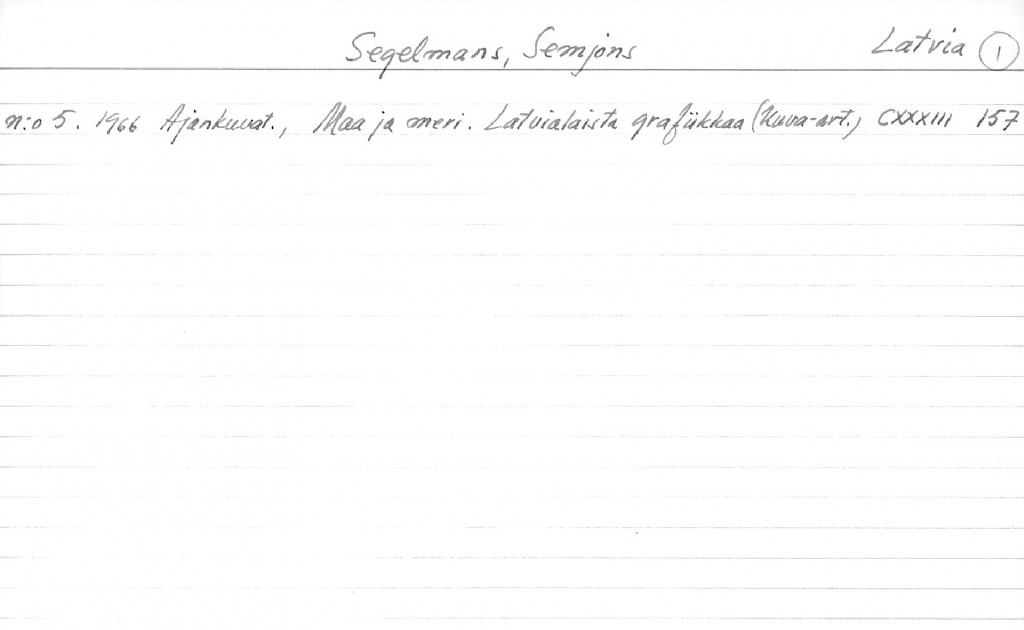 Segelmans, Semjons Latvia 1
n:o 5. 1966 Ajankuvat., Maa ja meri. Latvialaista grafiikkaa (Kuva-art.) CXXXIII 157